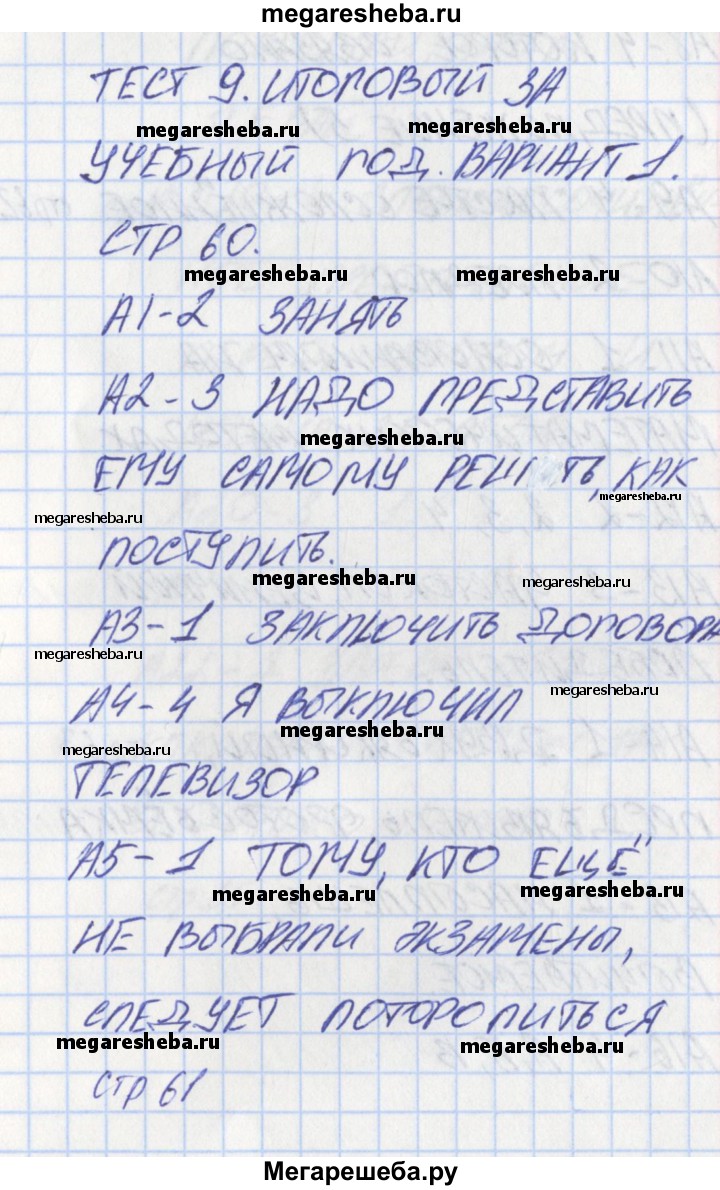 megaresheba.ru
ТЕСТ 9. ИТОГОВЫЙ ЗА
megaresheba.ru megaresheba.ru
УЧЕБНЫЙ ГОД. ВАРИАНТ 1.
СТР 60.
megaresheba.ru megaresheba.ru
А1-2 ЗАНЯТЬ
А2-3 НАДО ПРЕДСТАВИТЬ
megaresheba.ru
ЕМУ САМОМУ РЕШ ТЬ, КАК
megaresheba.ru
megaresheba.ru
ПОСТУПИТЬ.
megaresheba.ru megaresheba.ru
А3-1 ЗАКЛЮЧИТЬ ДОГОВОРА
megaresheba.ru
А4-4 Я ВЫКЛЮЧИЛ
megaresheba.ru
megaresheba.ru
megaresheba.ru
ТЕЛЕВИЗОР
А5-1 ТОМУ, КТО ЕЩЁ
megaresheba.ru megaresheba.ru
НЕ ВЫБРАЛИ ЭКЗАМЕНЫ,
СЛЕДУЕТ ПОТОРОПИТЬСЯ
megaresheba.ru megaresheba.ru
СТР 61
Мегарешеба.ру